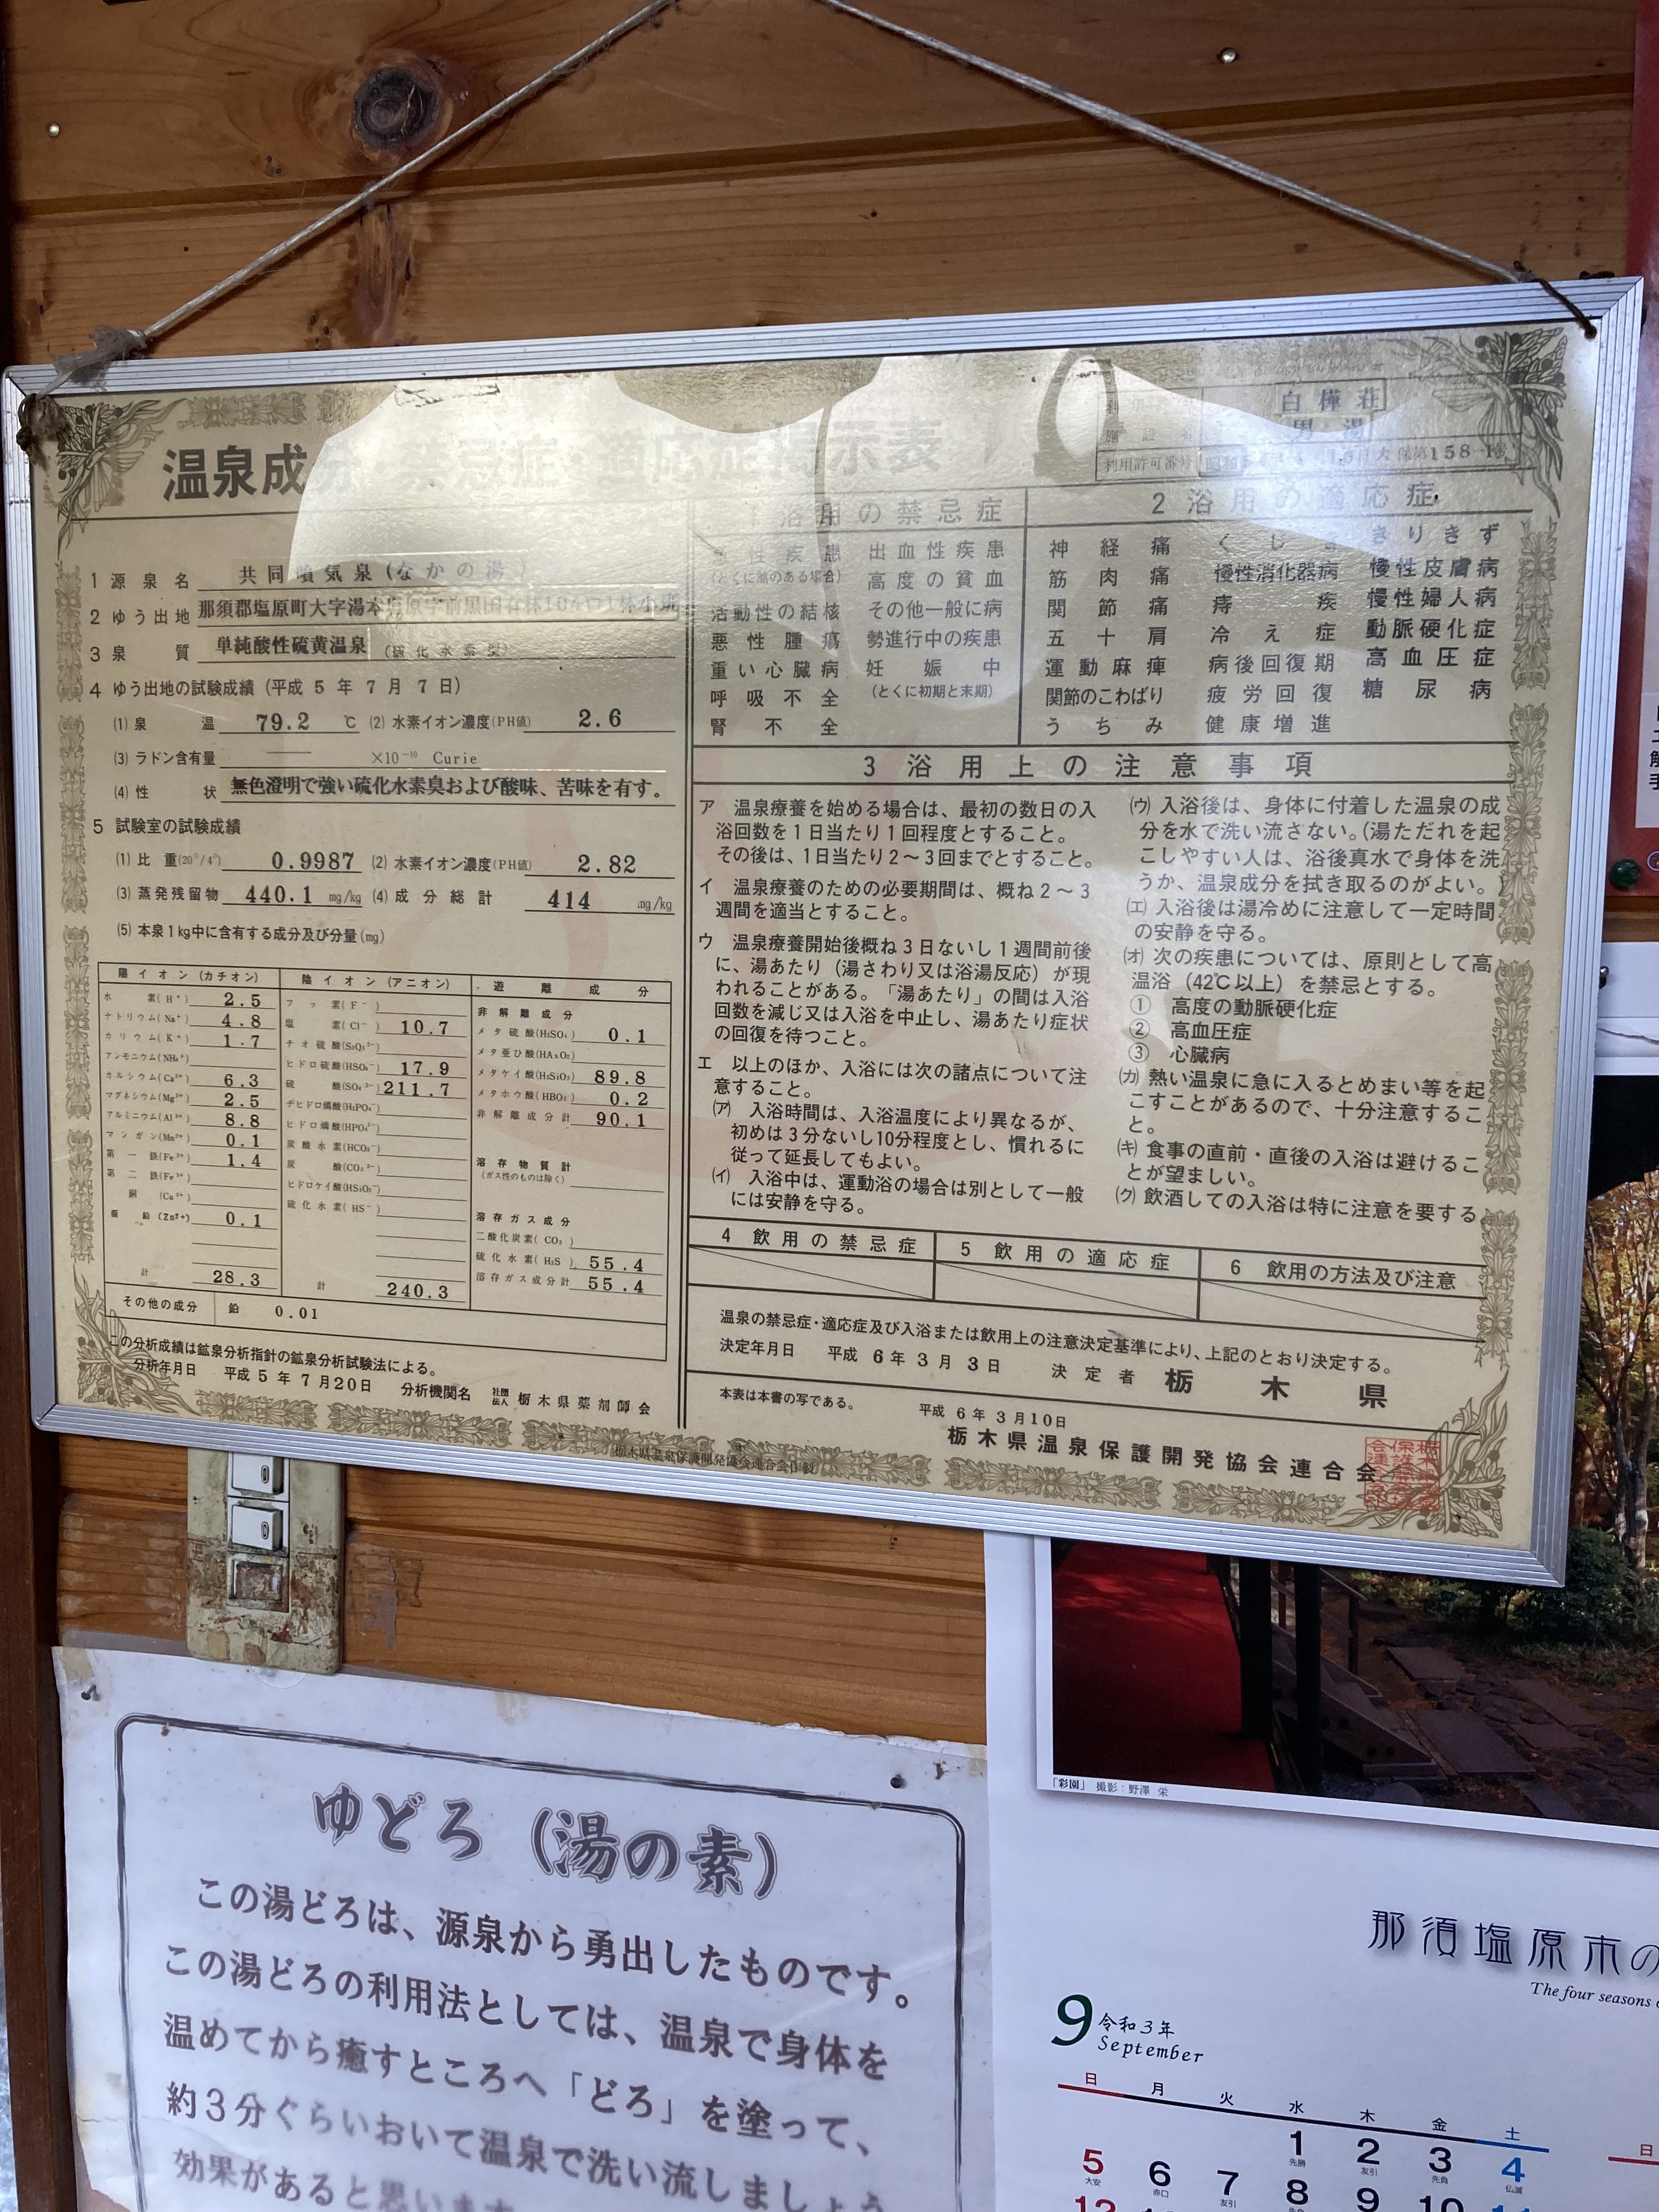 温泉成分
禁忌症・適応症掲示表
施設名
白樺荘
男湯
利用許可番号
1 源泉名 共同噴気泉(なかの湯)
2 ゆう出地 那須郡塩原町大字湯本塩原字前黒
3 泉質 単純酸性硫黄温泉 (硫化水素型)
4 ゆう出地の試験成績 (平成 5 年 7 月 7 日)
(1) 泉温 79.2 ℃ (2) 水素イオン濃度(PH値) 2.6
(3) ラドン含有量 —— ×10⁻¹⁰ Curie
(4) 性状 無色澄明で強い硫化水素臭および酸味、苦味を有す。
5 試験室の試験成績
(1) 比重(20°/4°) 0.9987 (2) 水素イオン濃度(PH値) 2.82
(3) 蒸発残留物 440.1 mg/kg (4) 成分総計 414 mg/kg
(5) 本泉1kg中に含有する成分及び分量(mg)
陽イオン(カチオン)
水素(H⁺) 2.5
ナトリウム(Na⁺) 4.8
カリウム(K⁺) 1.7
アンモニウム(NH₄⁺)
カルシウム(Ca²⁺) 6.3
マグネシウム(Mg²⁺) 2.5
アルミニウム(Al³⁺) 8.8
マンガン(Mn²⁺) 0.1
第一鉄(Fe²⁺) 1.4
第二鉄(Fe³⁺)
銅(Cu²⁺)
亜鉛(Zn²⁺) 0.1
計 28.3
陰イオン(アニオン)
フッ素(F⁻)
塩素(Cl⁻) 10.7
チオ硫酸(S₂O₃²⁻)
ヒドロ硫酸(HSO₄⁻) 17.9
硫酸(SO₄²⁻) 211.7
ヂヒドロ燐酸(H₂PO₄⁻)
ヒドロ燐酸(HPO₄²⁻)
炭酸水素(HCO₃⁻)
炭酸(CO₃²⁻)
ヒドロケイ酸(HSiO₃⁻)
硫化水素(HS⁻)
計 240.3
遊離成分
非解離成分
メタ硫酸(H₂SO₄) 0.1
メタ亜ひ酸(HAsO₂)
メタケイ酸(H₂SiO₃) 89.8
メタホウ酸(HBO₂) 0.2
非解離成分計 90.1
溶存物質計
(ガス性のものは除く)
溶存ガス成分
二酸化炭素(CO₂)
硫化水素(H₂S) 55.4
溶存ガス成分計 55.4
その他の成分 鉛 0.01
この分析成績は鉱泉分析指針の鉱泉分析試験法による。
分析年月日 平成 5 年 7 月20日 分析機関名 社団法人 栃木県薬剤師会
1 浴用の禁忌症
急性疾患 出血性疾患
(とくに熱のある場合) 高度の貧血
活動性の結核 その他一般に病
悪性腫瘍 勢進行中の疾患
重い心臓病 妊娠中
呼吸不全 (とくに初期と末期)
腎不全
2 浴用の適応症
神経痛 くじき きりきず
筋肉痛 慢性消化器病 慢性皮膚病
関節痛 痔疾 慢性婦人病
五十肩 冷え症 動脈硬化症
運動麻痺 病後回復期 高血圧症
関節のこわばり 疲労回復 糖尿病
うちみ 健康増進
3 浴用上の注意事項
ア 温泉療養を始める場合は、最初の数日の入
浴回数を1日当たり1回程度とすること。
その後は、1日当たり2～3回までとすること。
イ 温泉療養のための必要期間は、概ね2～3
週間を適当とすること。
ウ 温泉療養開始後概ね3日ないし1週間前後
に、湯あたり(湯さわり又は浴湯反応)が現
われることがある。「湯あたり」の間は入浴
回数を減じ又は入浴を中止し、湯あたり症状
の回復を待つこと。
エ 以上のほか、入浴には次の諸点について注
意すること。
(ア) 入浴時間は、入浴温度により異なるが、
初めは3分ないし10分程度とし、慣れるに
従って延長してもよい。
(イ) 入浴中は、運動浴の場合は別として一般
には安静を守る。
(ウ) 入浴後は、身体に付着した温泉の成
分を水で洗い流さない。(湯ただれを起
こしやすい人は、浴後真水で身体を洗
うか、温泉成分を拭き取るのがよい。
(エ) 入浴後は湯冷めに注意して一定時間
の安静を守る。
(オ) 次の疾患については、原則として高
温浴 (42℃以上) を禁忌とする。
① 高度の動脈硬化症
② 高血圧症
③ 心臓病
(カ) 熱い温泉に急に入るとめまい等を起
こすことがあるので、十分注意するこ
と。
(キ) 食事の直前・直後の入浴は避けるこ
とが望ましい。
(ク) 飲酒しての入浴は特に注意を要する
4 飲用の禁忌症
5 飲用の適応症
6 飲用の方法及び注意
温泉の禁忌症・適応症及び入浴または飲用上の注意決定基準により、上記のとおり決定する。
決定年月日 平成 6 年 3 月 3 日 決定者 栃木県
本表は本書の写である。
平成 6 年 3 月10日
栃木県温泉保護開発協会連合会
栃木県温泉保護開発協会連合会作製
ゆどろ (湯の素)
この湯どろは、源泉から勇出したものです。
この湯どろの利用法としては、温泉で身体を
温めてから癒すところへ「どろ」を塗って、
約3分ぐらいおいて温泉で洗い流しましょう
効果があると思います
「彩園」 撮影：野澤 栄
那須塩原市の
The four seasons
9 令和3年
September
日 月 火 水 木 金 土
1 2 3 4
先勝 友引 先負 仏滅
5 6 7 8 9 10 11
大安 赤口
12
日